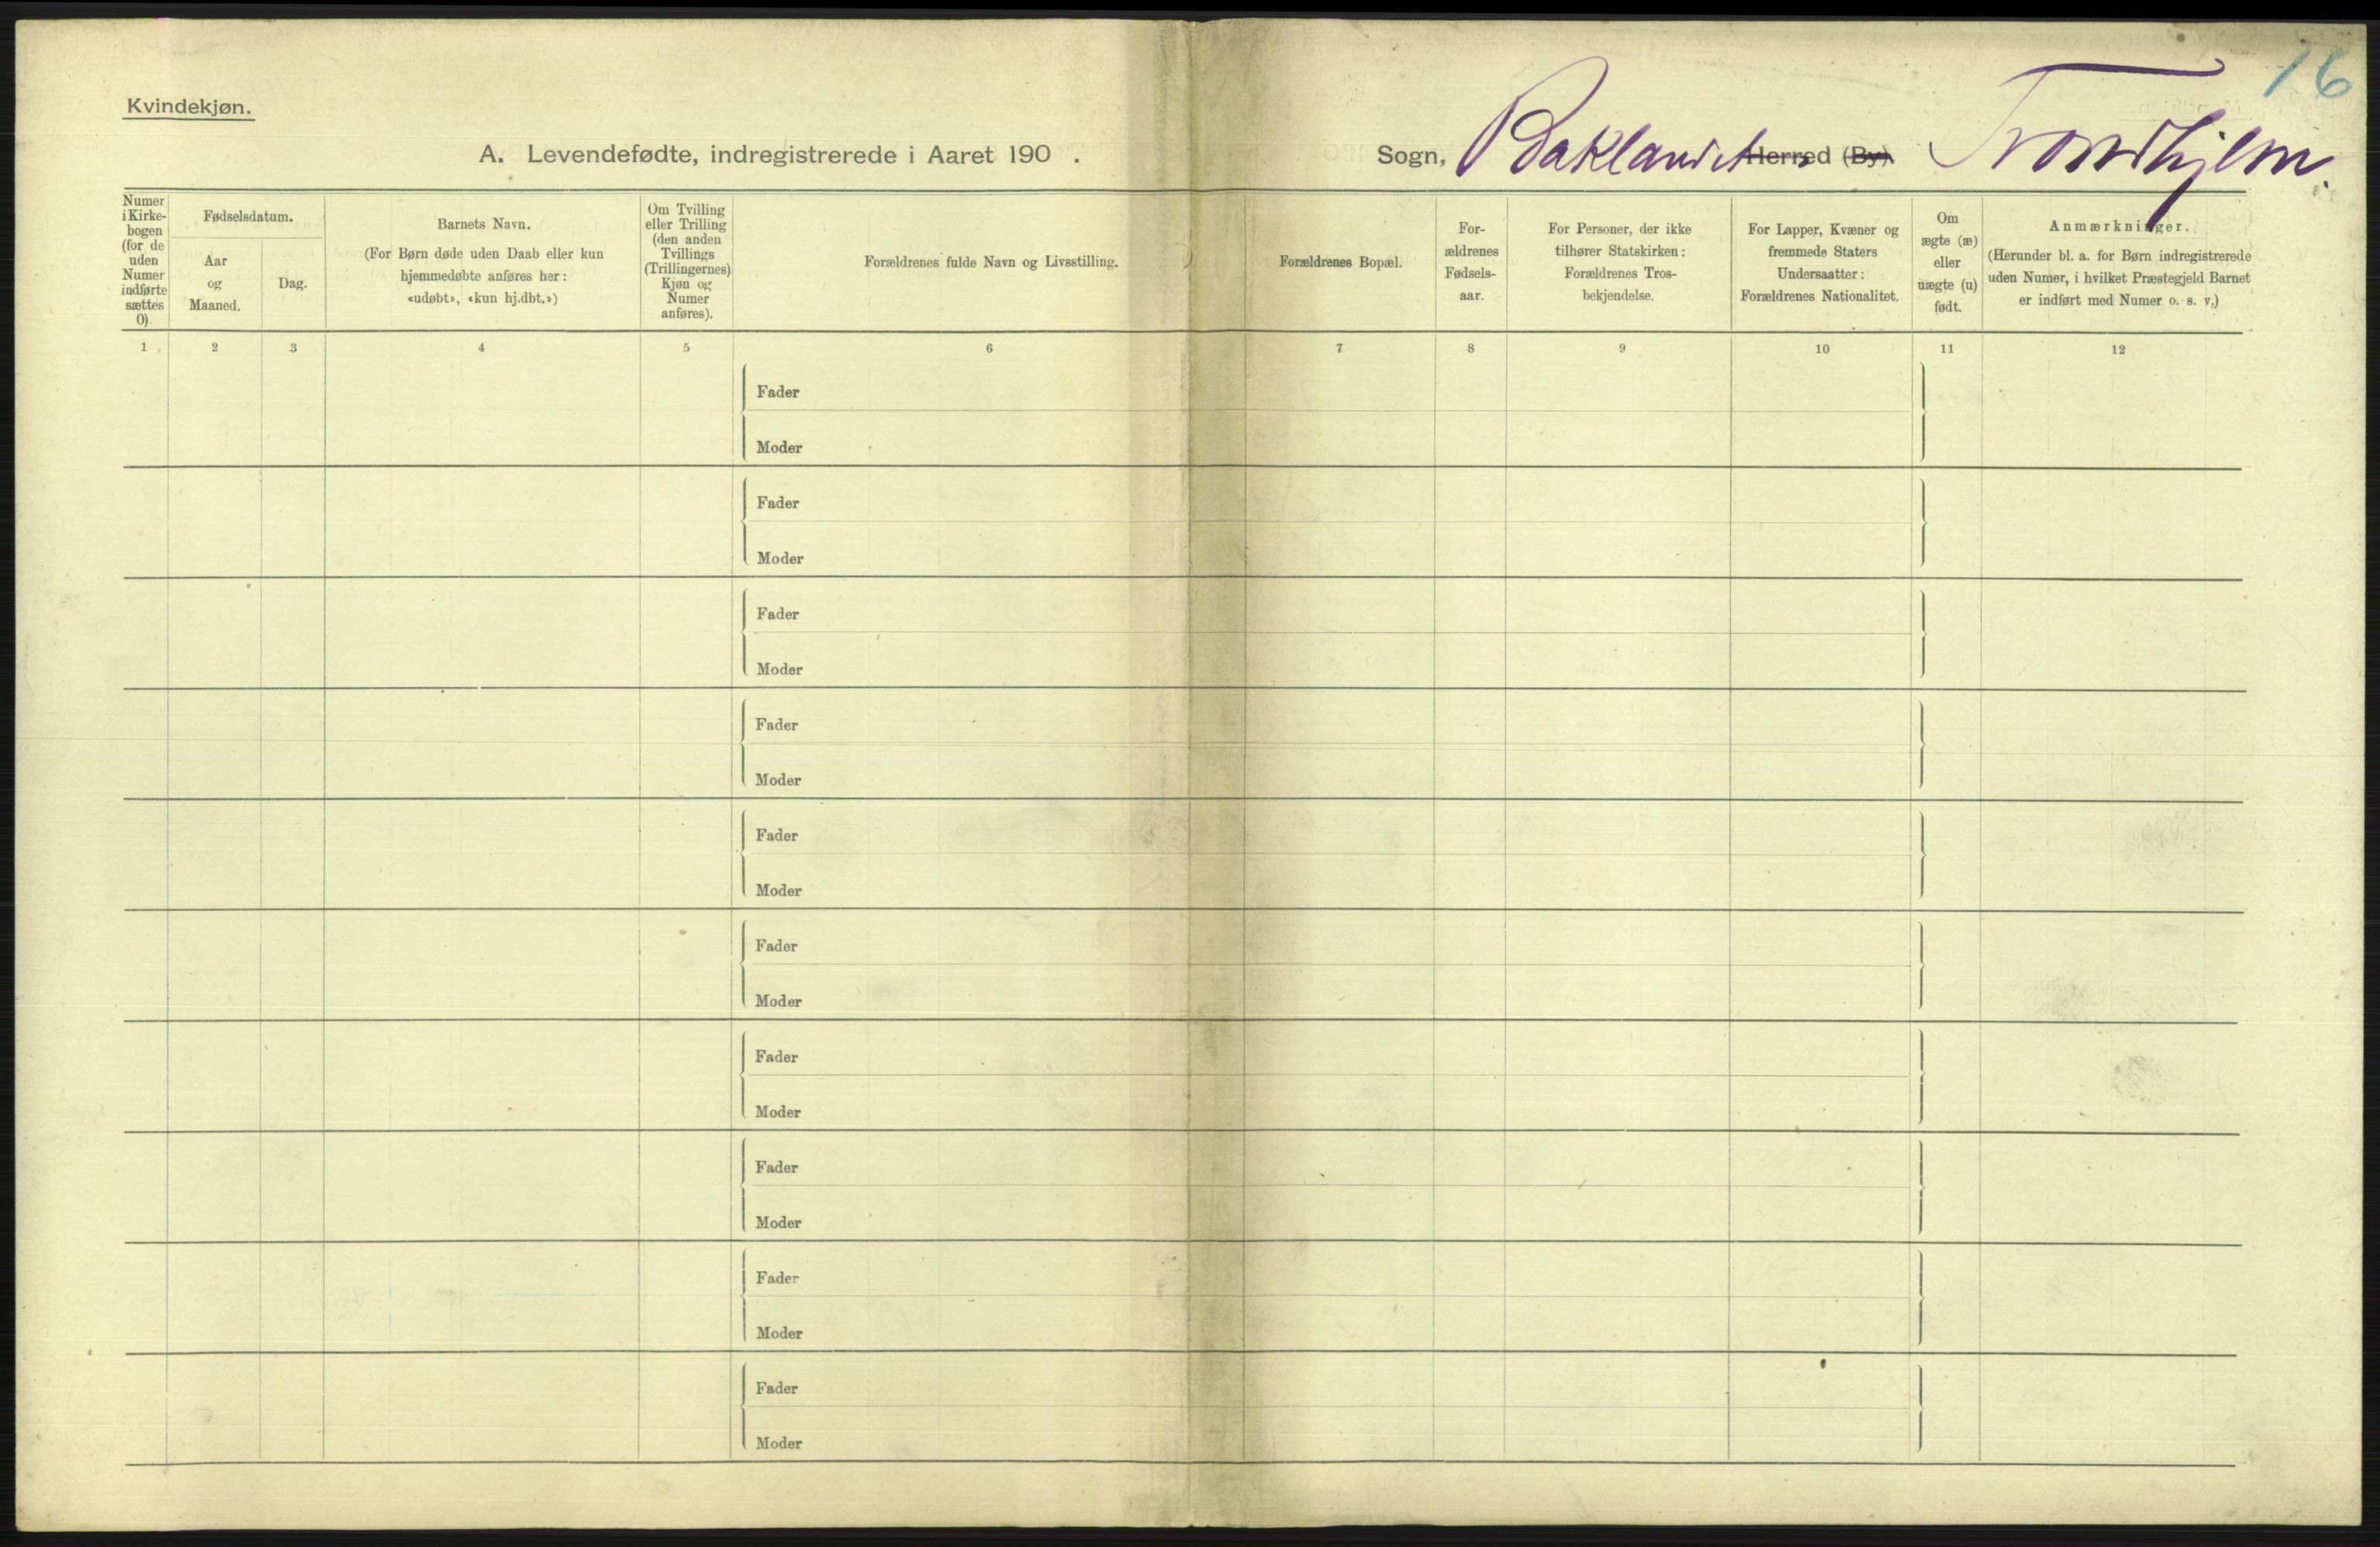 16
Kvindekjøn.
A. Levendefødte, indregistrerede i Aaret 190 .
Sogn, Baklandets Herred (By). Trondhjem.
Numer i Kirke- bogen (for de uden Numer indførte sættes 0).
Fødselsdatum.
Aar og Maaned.
Dag.
Barnets Navn.
(For Børn døde uden Daab eller kun
hjemmedøbte anføres her:
«udøbt», «kun hj.dbt.»)
Om Tvilling
eller Trilling
(den anden
Tvillings
(Trillingernes)
Kjøn og
Numer
anføres).
Forældrenes fulde Navn og Livsstilling.
Forældrenes Bopæl.
For-
ældrenes
Fødsels-
aar.
For Personer, der ikke
tilhører Statskirken:
Forældrenes Tros-
bekjendelse.
For Lapper, Kvæner og
fremmede Staters
Undersaatter:
Forældrenes Nationalitet.
Om
ægte (æ)
eller
uægte (u)
født.
Anmærkninger.
(Herunder bl. a. for Børn indregistrerede
uden Numer, i hvilket Præstegjeld Barnet
er indført med Numer o. s. v.)
1 2 3 4 5 6 7 8 9 10 11 12
Fader
Moder
Fader
Moder
Fader
Moder
Fader
Moder
Fader
Moder
Fader
Moder
Fader
Moder
Fader
Moder
Fader
Moder
Fader
Moder